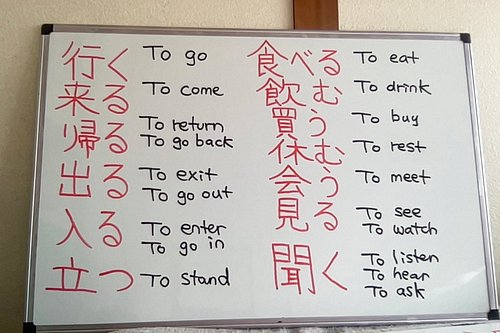 行く To go
来る To come
帰る To return
To go back
出る To exit
To go out
入る To enter
To go in
立つ To stand
食べる To eat
飲む To drink
買う To buy
休む To rest
会う To meet
見る To see
To watch
聞く To listen
To hear
To ask